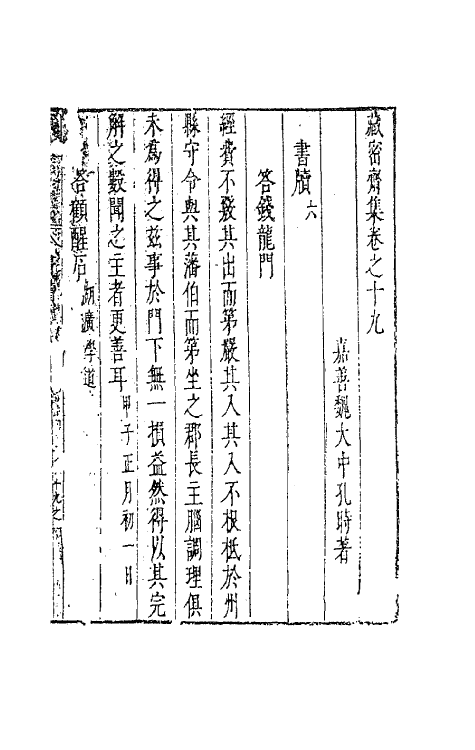 藏密齋集卷之十九
嘉善魏大中孔時著
書牘六
答錢龍門
經費不發其出而第嚴其入其入不根柢於州
縣守令與其藩伯而第坐之郡長主腦調理俱
未為得之茲事於門下無一損益然得以其完
解之數聞之主者更善耳甲子正月初一日
答顧醒石湖廣學道